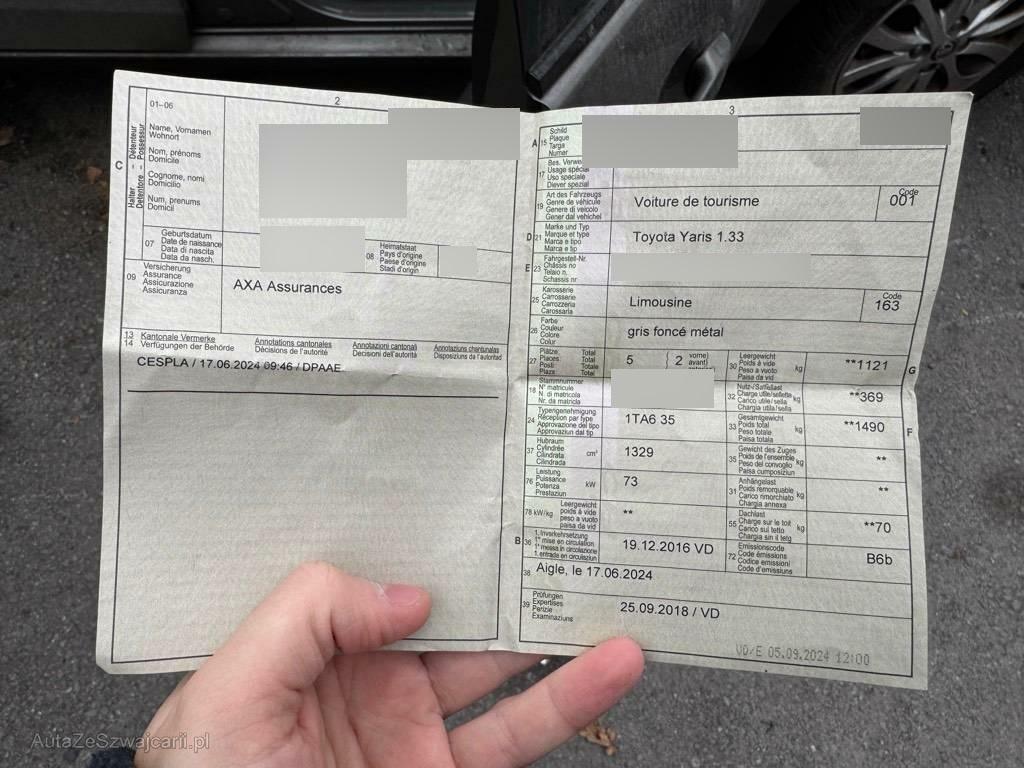 2
01–06
Name, Vornamen
Wohnort
Nom, prénoms
Domicile
Cognome, nomi
Domicilio
Num, prenums
Domicil
C
Halter – Détenteur
Detentore – Possessur
07
Geburtsdatum
Date de naissance
Data di nascita
Data da nasch.
08
Heimatstaat
Pays d'origine
Paese d'origine
Stadi d'origin
09
Versicherung
Assurance
Assicurazione
Assicuranza
AXA Assurances
13
14
Kantonale Vermerke
Verfügungen der Behörde
Annotations cantonales
Décisions de l'autorité
Annotazioni cantonali
Decisioni dell'autorità
Annotaziuns chantunalas
Disposiziuns da l'autoritad
CESPLA / 17.06.2024 09:46 / DPAAE.
3
A
15
Schild
Plaque
Targa
Numer
17
Bes. Verwe
Usage spécial
Uso speciale
Diever spezial
19
Art des Fahrzeugs
Genre de véhicule
Genere di veicolo
Gener dal vehichel
Voiture de tourisme
Code
001
D
21
Marke und Typ
Marque et type
Marca e tipo
Marca e tip
Toyota Yaris 1.33
E
23
Fahrgestell-Nr.
Châssis no
Telaio n.
Schassis nr
25
Karosserie
Carrosserie
Carrozzeria
Carossaria
Limousine
Code
163
26
Farbe
Couleur
Colore
Colur
gris foncé métal
27
Plätze Total
Places Total
Posti Totale
Plazs Total
5
2
vorne)
avant)
30
Leergewicht
Poids à vide
Peso a vuoto
Paisa da vid
kg
**1121
G
18
Stammnummer
N° matricule
N. di matricola
Nr. da matricla
32
Nutz-/Sattellast
Charge utile/sellette
Carico utile/sella
Chargia utila/sella
kg
**369
24
Typengenehmigung
Réception par type
Approvazione del tipo
Approvaziun dal tip
1TA6 35
33
Gesamtgewicht
Poids total
Peso totale
Paisa totala
kg
**1490
F
37
Hubraum
Cylindrée
Cilindrata
Cilindrada
cm³
1329
35
Gewicht des Zuges
Poids de l'ensemble
Peso del convoglio
Paisa cumposiziun
kg
**
76
Leistung
Puissance
Potenza
Prestaziun
kW
73
31
Anhängelast
Poids remorquable
Carico rimorchiato
Chargia annexa
kg
**
78
kW/kg
Leergewicht
poids à vide
peso a vuoto
paisa da vid
**
55
Dachlast
Charge sur le toit
Carico sul tetto
Chargia sin il tetg
kg
**70
B
36
1. Inverkehrsetzung
1re mise en circulation
1a messa in circolazione
1. entrada en circulaziun
19.12.2016 VD
72
Emissionscode
Code émissions
Codice emissioni
Code d'emissiuns
B6b
38
Aigle, le 17.06.2024
39
Prüfungen
Expertises
Perizie
Examinaziuns
25.09.2018 / VD
VD/E 05.09.2024 12:00
AutaZeSzwajcarii.pl